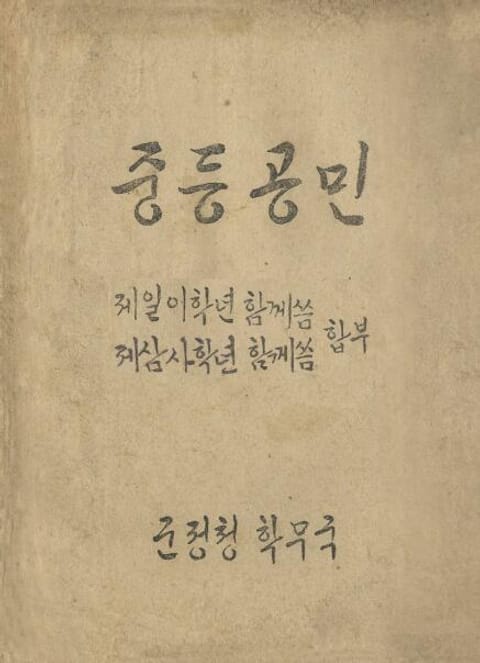 중등 공민
제일이학년 함께씀
제삼사학년 함께씀
합부
군정청 학무국